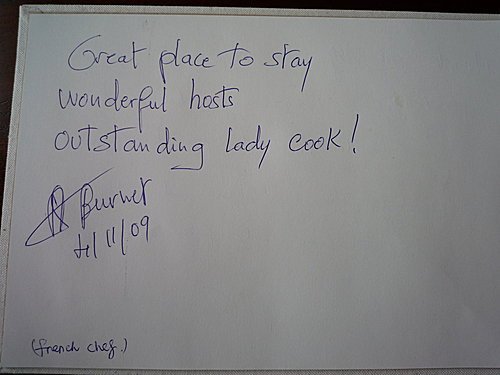 Great place to stay
wonderful hosts
outstanding lady cook!
Burnet
11/09
(french chef.)